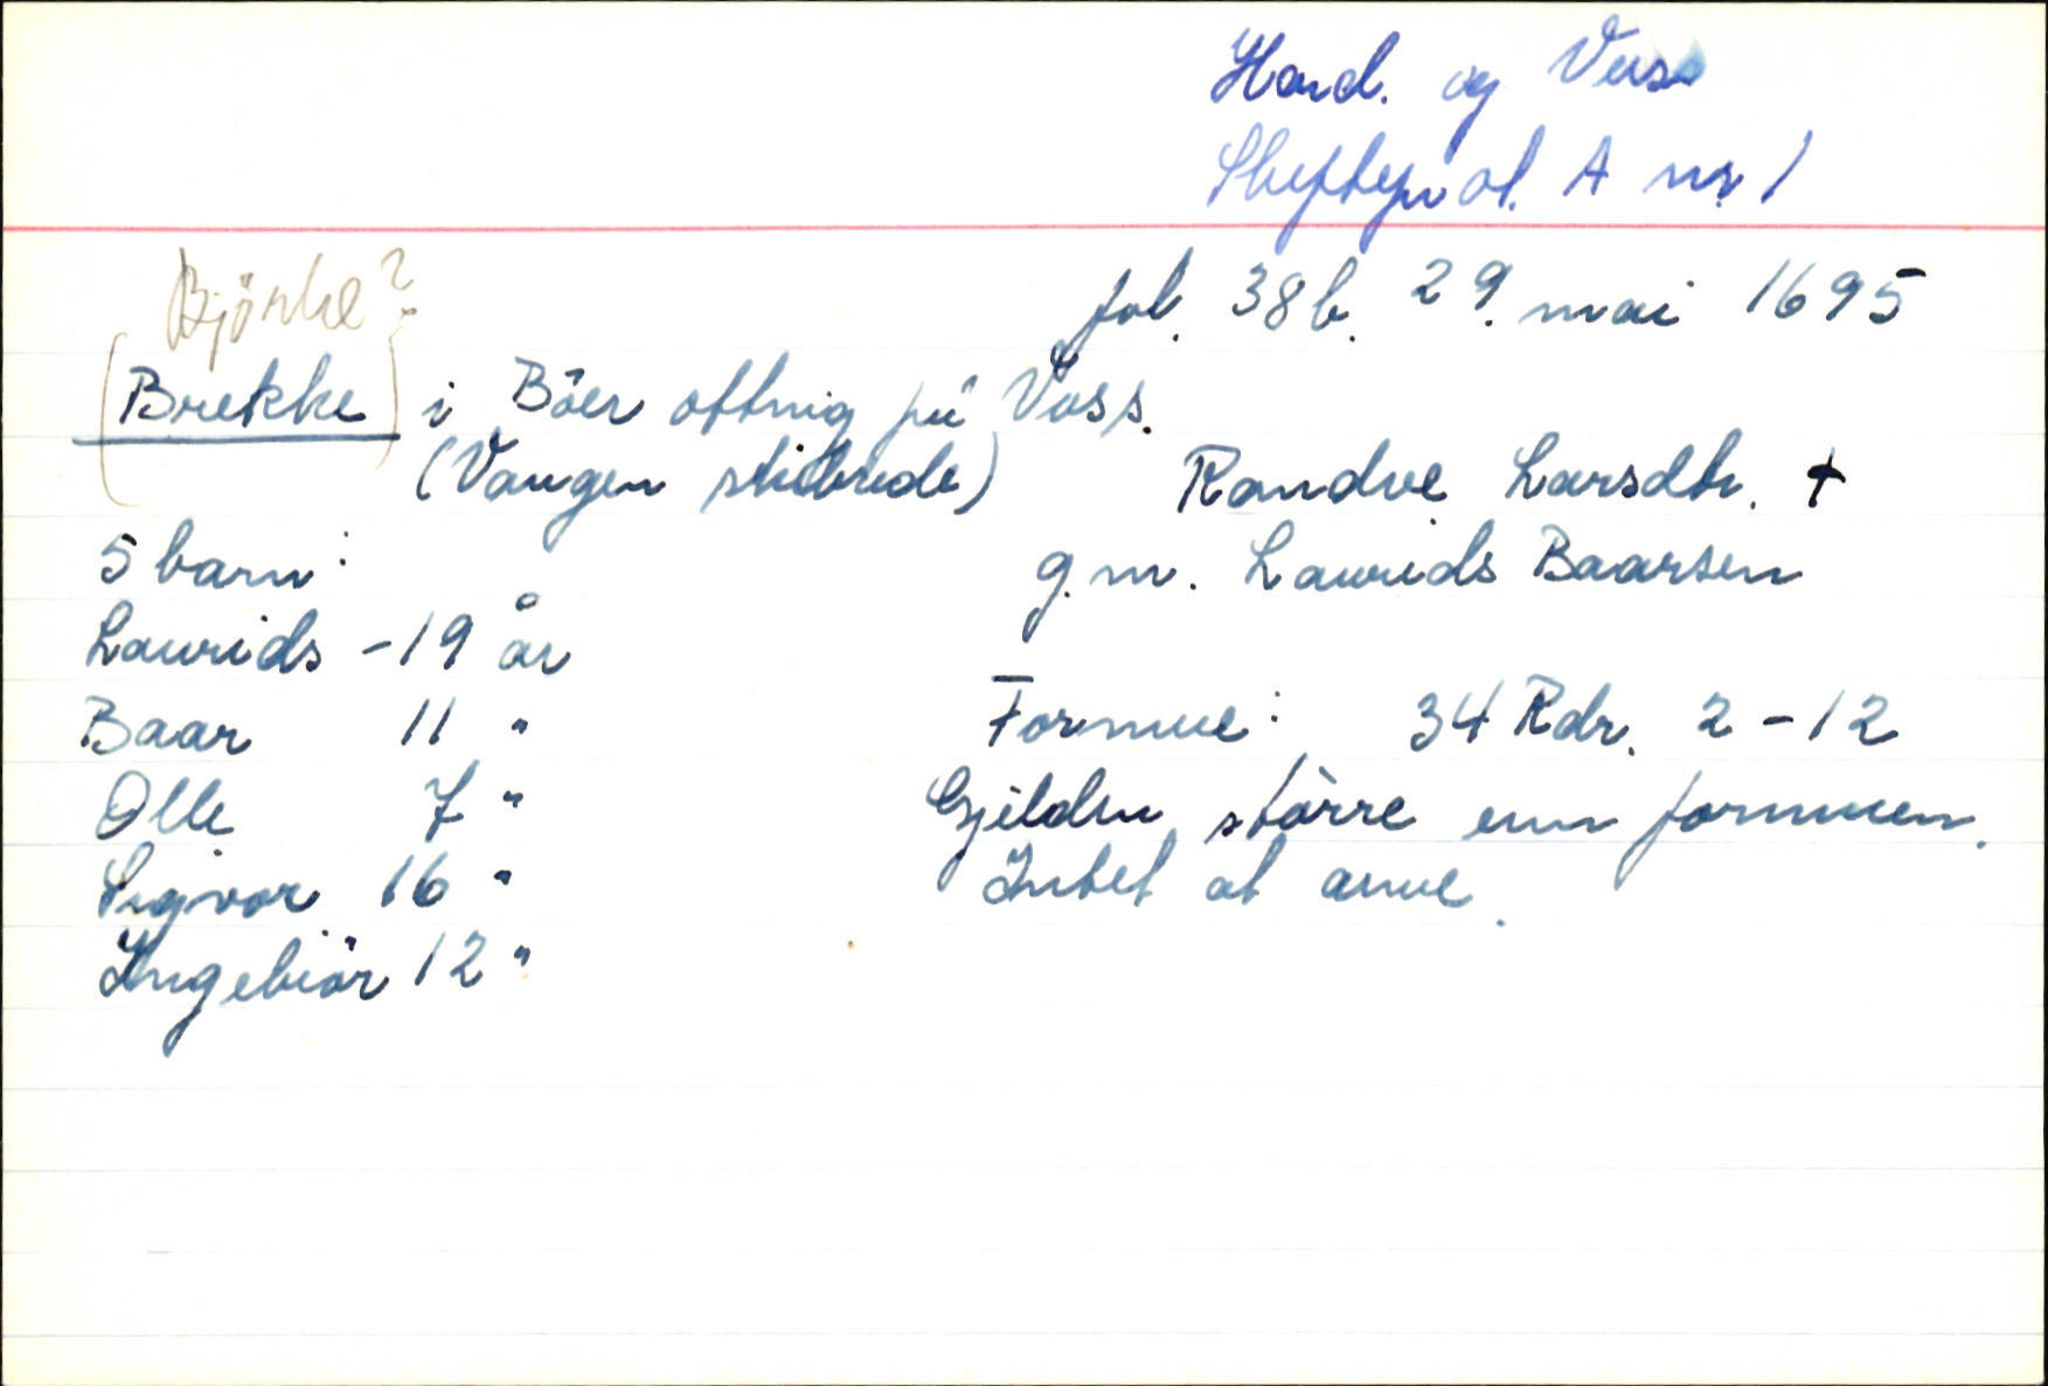 Hard. og Voss
Skifteprot. A nr. 1
Björke?
fol. 38b. 29. mai 1695
(Brekke) i Böer ottnig på Voss.
(Vangen skibrede)
Randve Larsdtr. +
5 barn:
g.m. Laurids Baarsen
Laurids - 19 år
Baar 11 "
Formue: 34 Rdr. 2 - 12
Olle 7 "
Gjelden större enn formuen.
Sigvor 16 "
Intet at arve.
Ingebiör 12 "